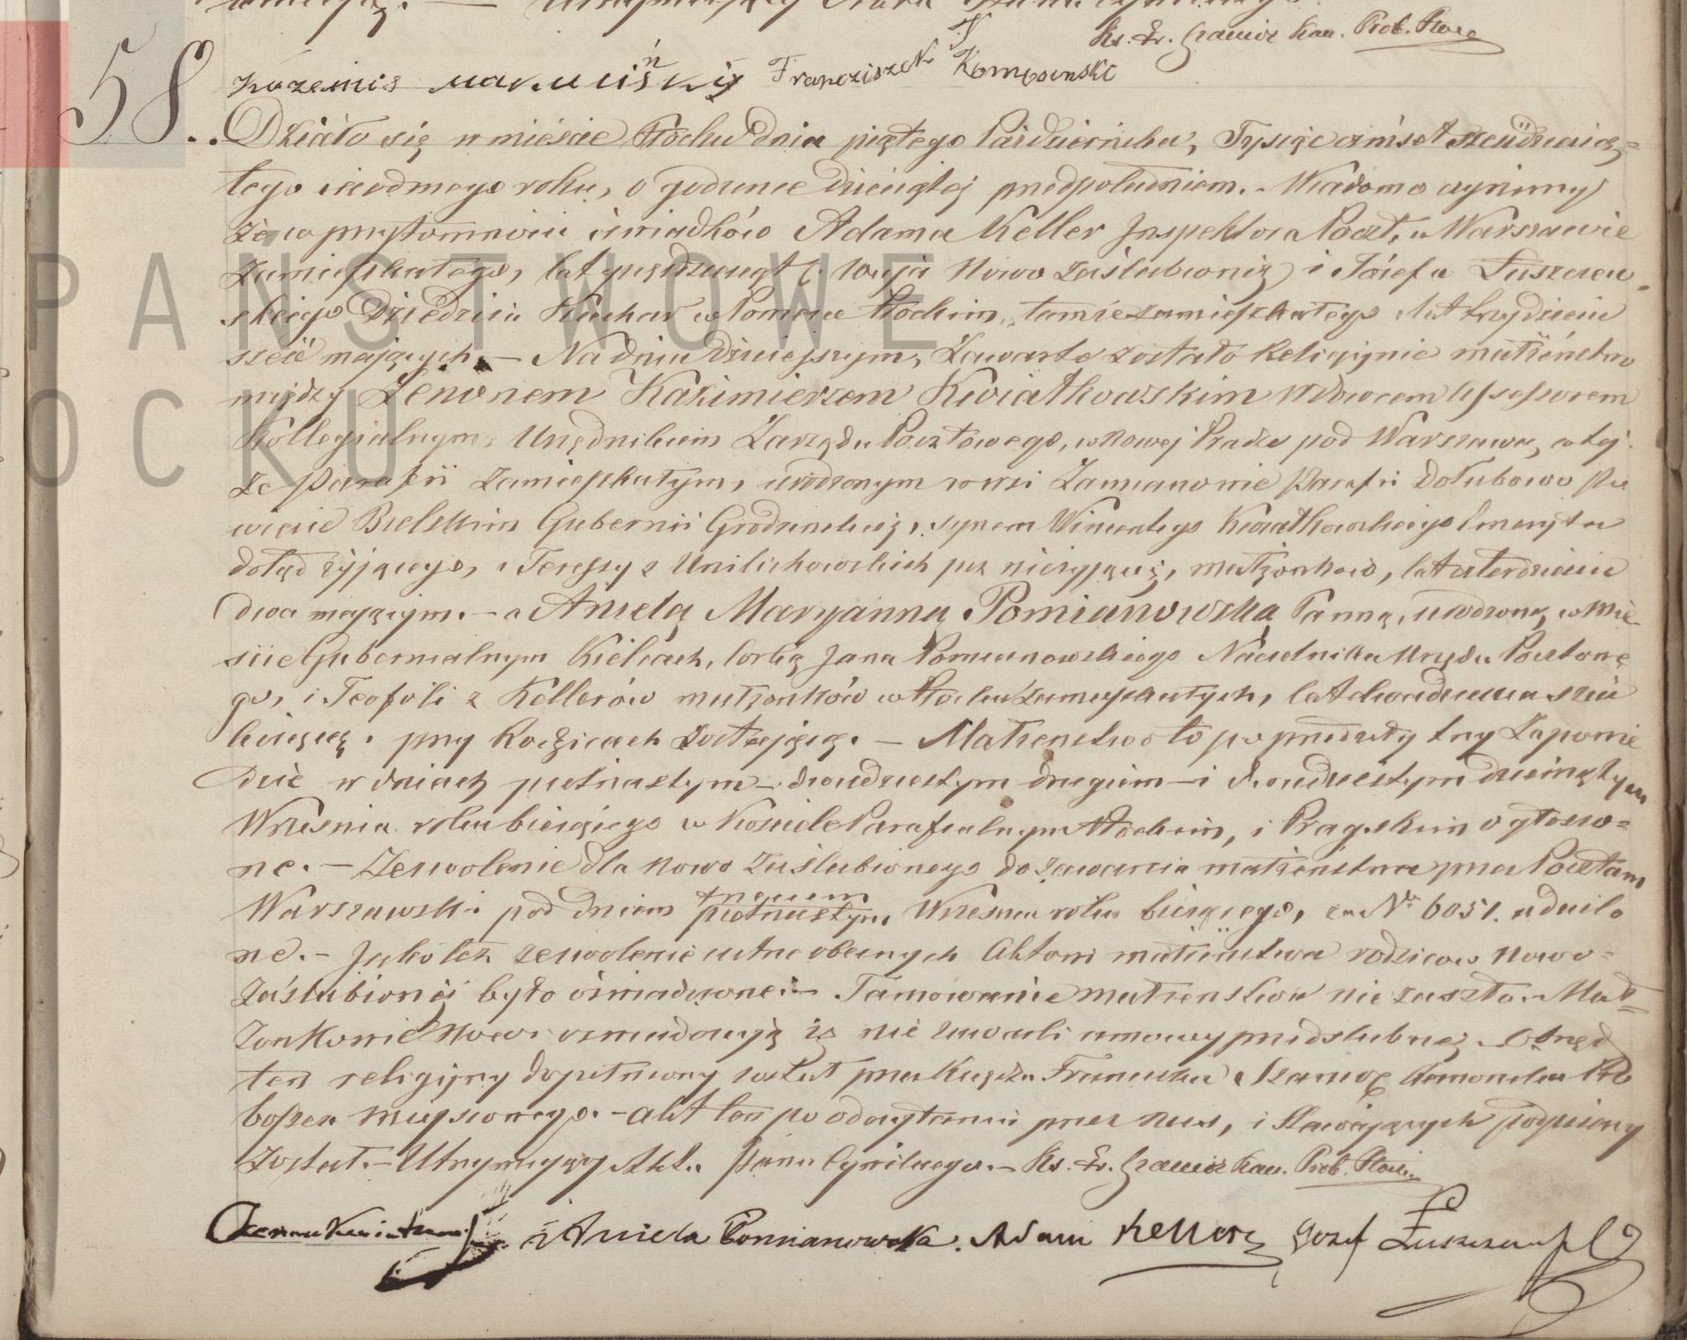 Ks. Fr. Szamot Kan. Prob. Płoc
Franciszek
58.
Działo się w mieście Płocku dnia piątego Października, Tysiąc ośmset sześdziesią-
tego siódmego roku, o godzinie dziewiątej przedpołudniem. - Wiadomo czynimy
że w przytomności świadków Adama Keller Inspektora Poczt, w Warszawie
zamieszkałego, lat pięćdziesiąt (: wuja Nowo zaślubionéj) i Józefa Łuszczew-
skiego Dziedzica Kuchar w Powiecie Płockim, tamże zamieszkałego lat trzydzieści
sześć mających. - Na dniu dzisiejszym, zawarte zostało Religijnie małżeństwo
między Zenonem Kazimierzem Kwiatkowskim Wdowcem Assesorem
Kollegialnym, Urzędnikiem Zarządu Pocztowego, w Nowej Pradze pod Warszawą, w tej-
że Parafii zamieszkałym, urodzonym we wsi Parafii Dołubowo Po
wiecie Bielskim Gubernii Grodzieńskiéj, synem Wincentego Kwiatkowskiego Emeryta
dotąd żyjącego, i Teressy z już nieżyjącéj, małżonków, lat czterdzieści
dwa mającym. - a Anielą Maryanną Pomianowską Panną, urodzoną w Mie-
ście Gubernialnym Kielcach, córką Jana Pomianowskiego Naczelnika Urzędu Pocztowe
go, i Teofili z Kellerów małżonków w Płocku zamieszkałych, lat dwadzieścia sześć
liczącą. przy Rodzicach zostającą. - Małżeństwo to poprzedziły trzy Zapowie
dzie w dniach piętnastym - dwudziestym drugim - i dwudziestym dziewiątym
Września roku bieżącego w Kościele Parafialnym Płockim, i Pragskim ogłoszo-
ne. - Zezwolenie dla Nowo Zaślubionego do zawarcia małżeństwa przez Pocztamt
Warszawski pod dniem piętnastym Września roku bieżącego, za No 6051. udzielo
ne. - Jako też zezwolenie ustne obecnych Aktowi małżeństwa rodziców Nowo-
Zaślubionéj było oświadczone. - Tamowanie małżeństwa nie zaszło. - Mał-
żonkowie Nowi oświadczają iż nie zawarli umowy przedślubnéj. - Obrzęd
ten religijny dopełniony został przez Księdza Franciszka Szamot Kanonika Pro
boszcza miejscowego. - akt ten po odczytaniu przez nas, i stawających podpisany
został. - Utrzymujący Akta Stanu Cywilnego. - Ks. Fr. Szamot Kan. Prob. Płocki.
Zenon Kwiatkowski Aniela Pomianowska. Adam Keller Józef Łuszczewski
PAŃSTWOWE
OCKU